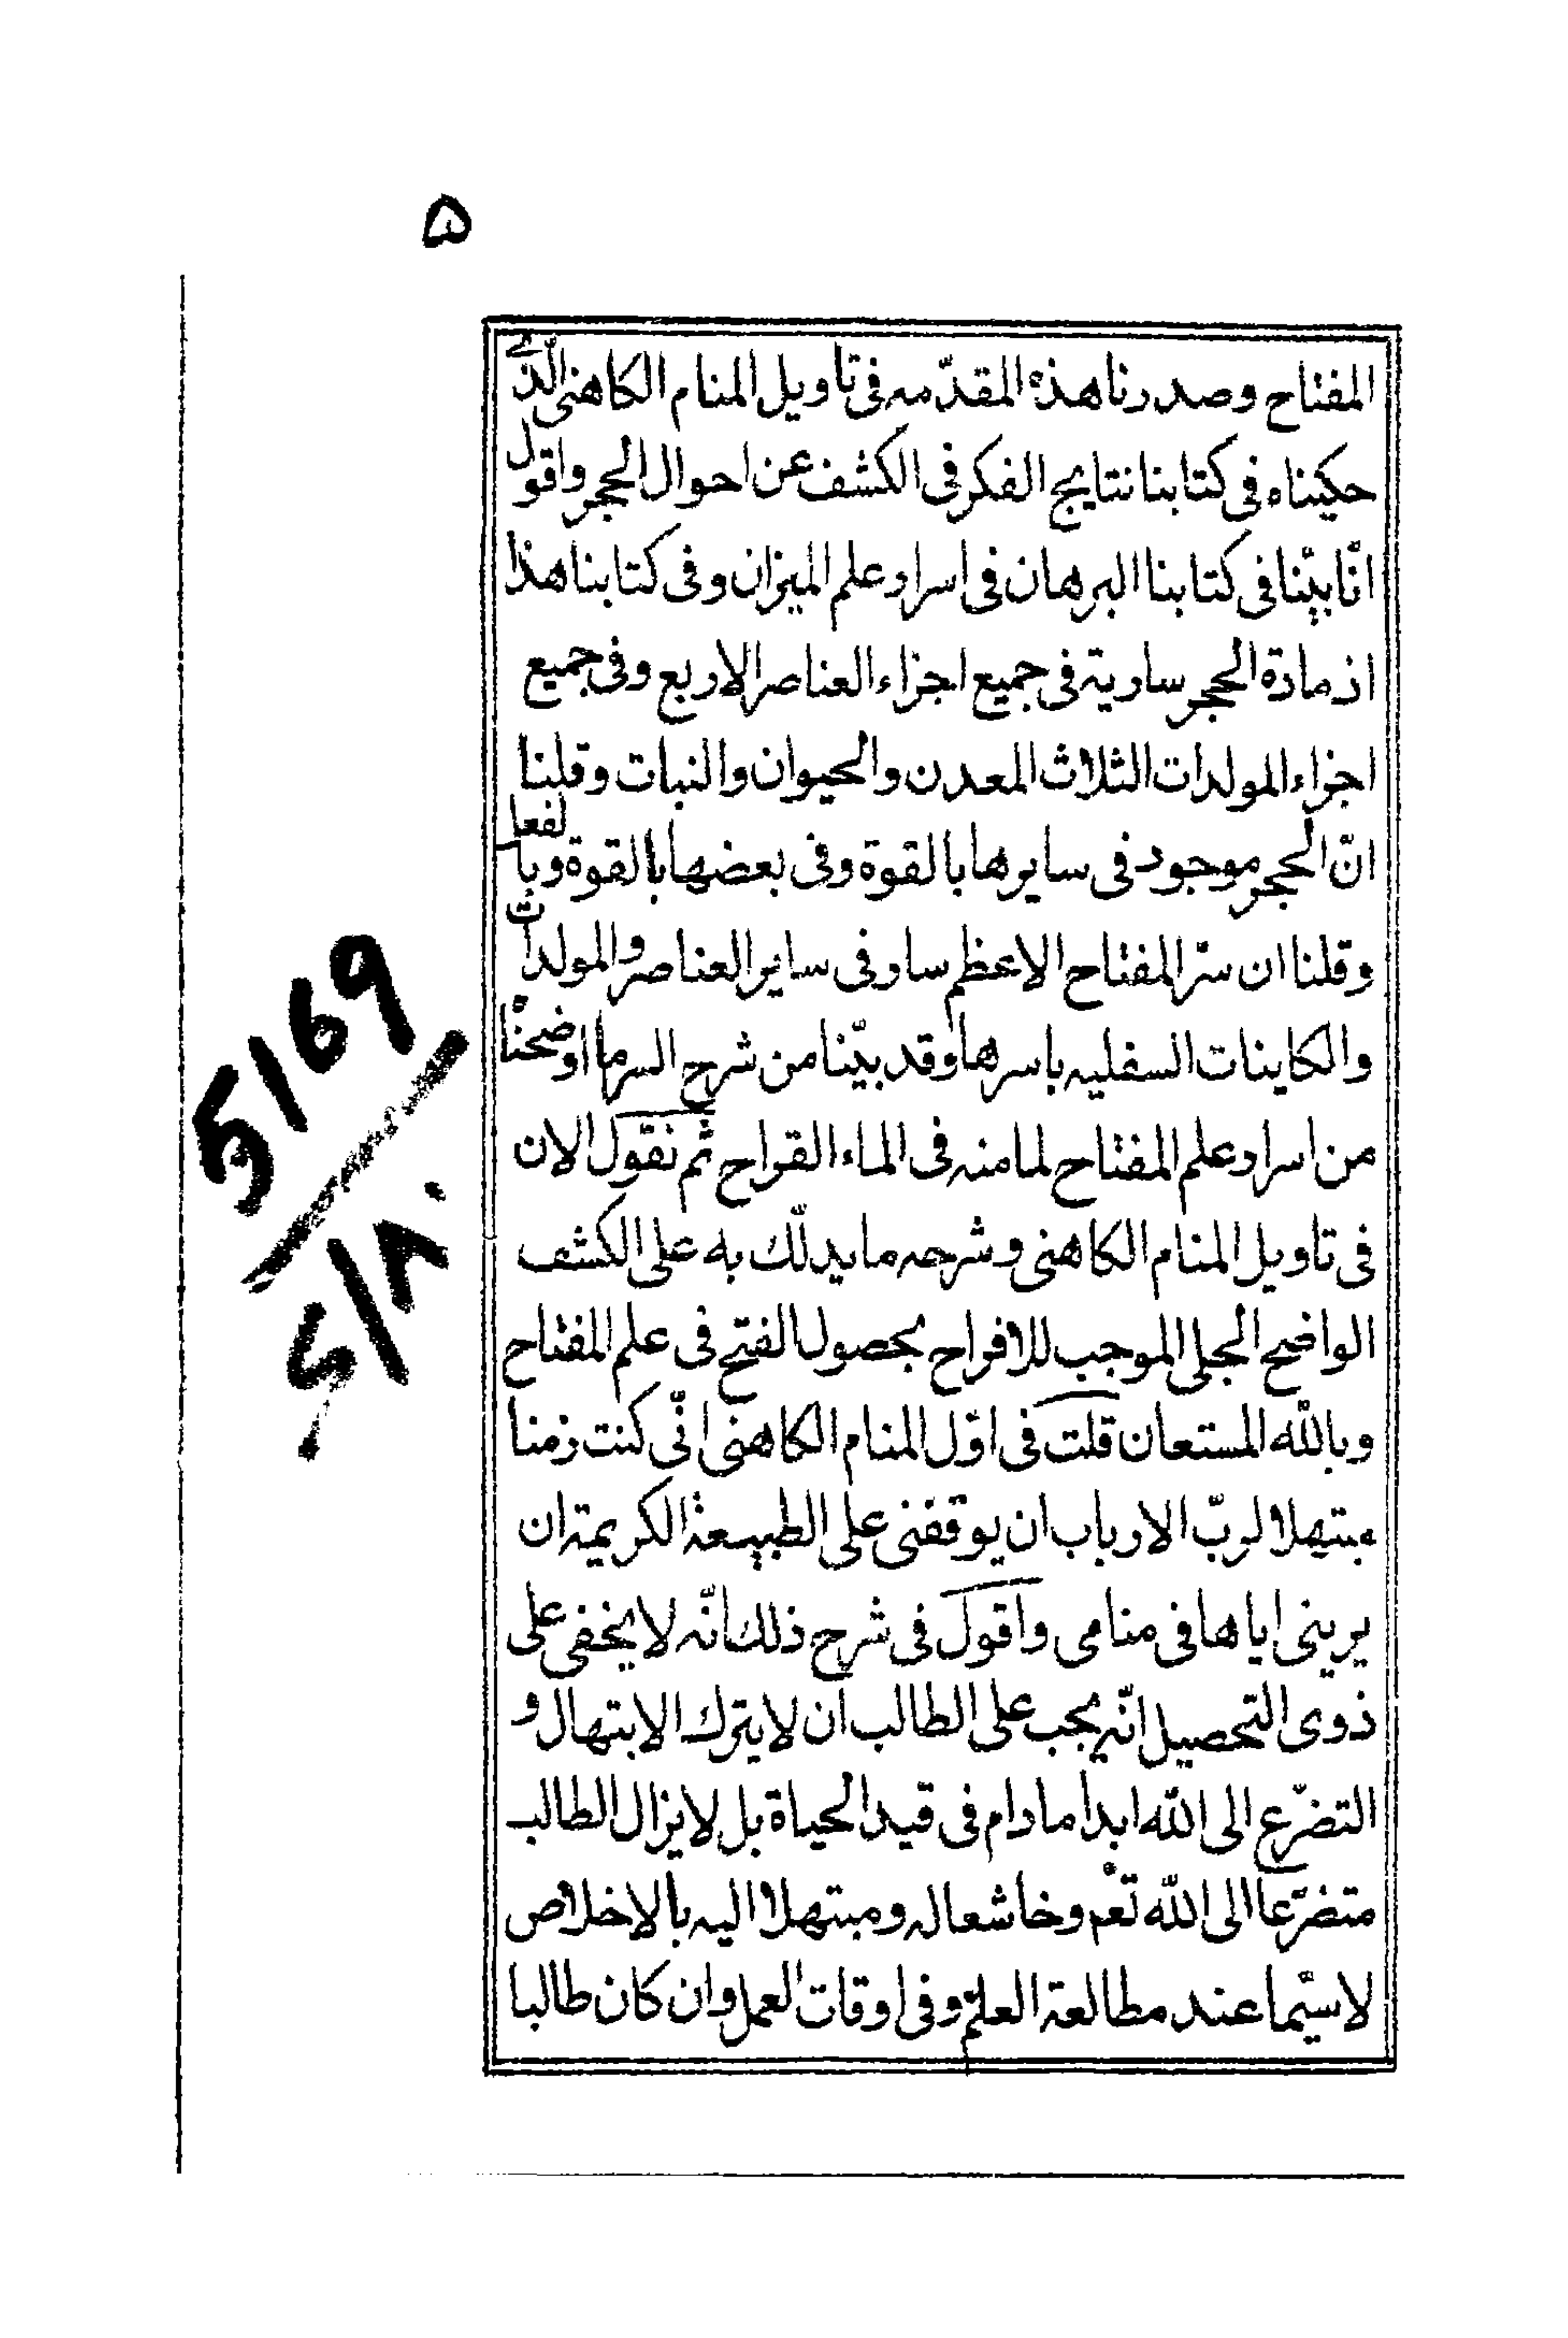 ۵
المفتاح وصدرنا هذه المقدّمه فى تاويل المنام الكاهنى الّذے
حكيناه فى كتابنا نتايج الفكر فى الكشف عن احوال الحجر واقول
انّا بيّنا فى كتابنا البرهان فى اسرار علم الميزان وفى كتابنا هذا
اذ مادة الحجر سارية فى جميع اجزاء العناصر الاربع وفى جميع
اجزاء المولدات الثلاث المعدن والحيوان والنبات وقلنا
انّ الحجر موجود فى سايرها بالقوة وفى بعضها بالقوة وبالفعل
وقلنا ان سرّ المفتاح الاعظم سار فى ساير العناصر والمولدات
والكاينات السفليه باسرها وقد بيّنا من شرح السر ما اوضحنا
من اسرار علم المفتاح لما منه فى الماء القراح ثم نقول الان
فى تاويل المنام الكاهنى وشرحه ما يدلّك به على الكشف
الواضح الجلى الموجب للافراح بحصول الفتح فى علم المفتاح
وبالله المستعان قلت فى اوّل المنام الكاهنى انّى كنت زمنا
مبتهلا لربّ الارباب ان يوقفنى على الطبيعة الكريمة ان
يرينى اياها فى منامى واقول فى شرح ذلك انّه لا يخفى على
ذوى التحصيل انّه يجب على الطالب ان لا يترك الابتهال و
التضرّع الى الله ابدا ما دام فى قيد الحياة بل لا يزال الطالب
متضرّعا الى الله تعم وخاشعا له ومبتهلا اليه بالاخلاص
لا سيّما عند مطالعة العلم وفى اوقات العمل وان كان طالبا